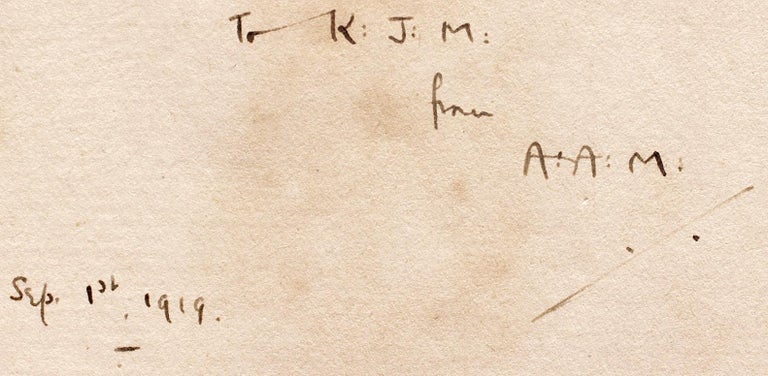 To K: J: M:
from
A: A: M:
Sep. 1st. 1919.